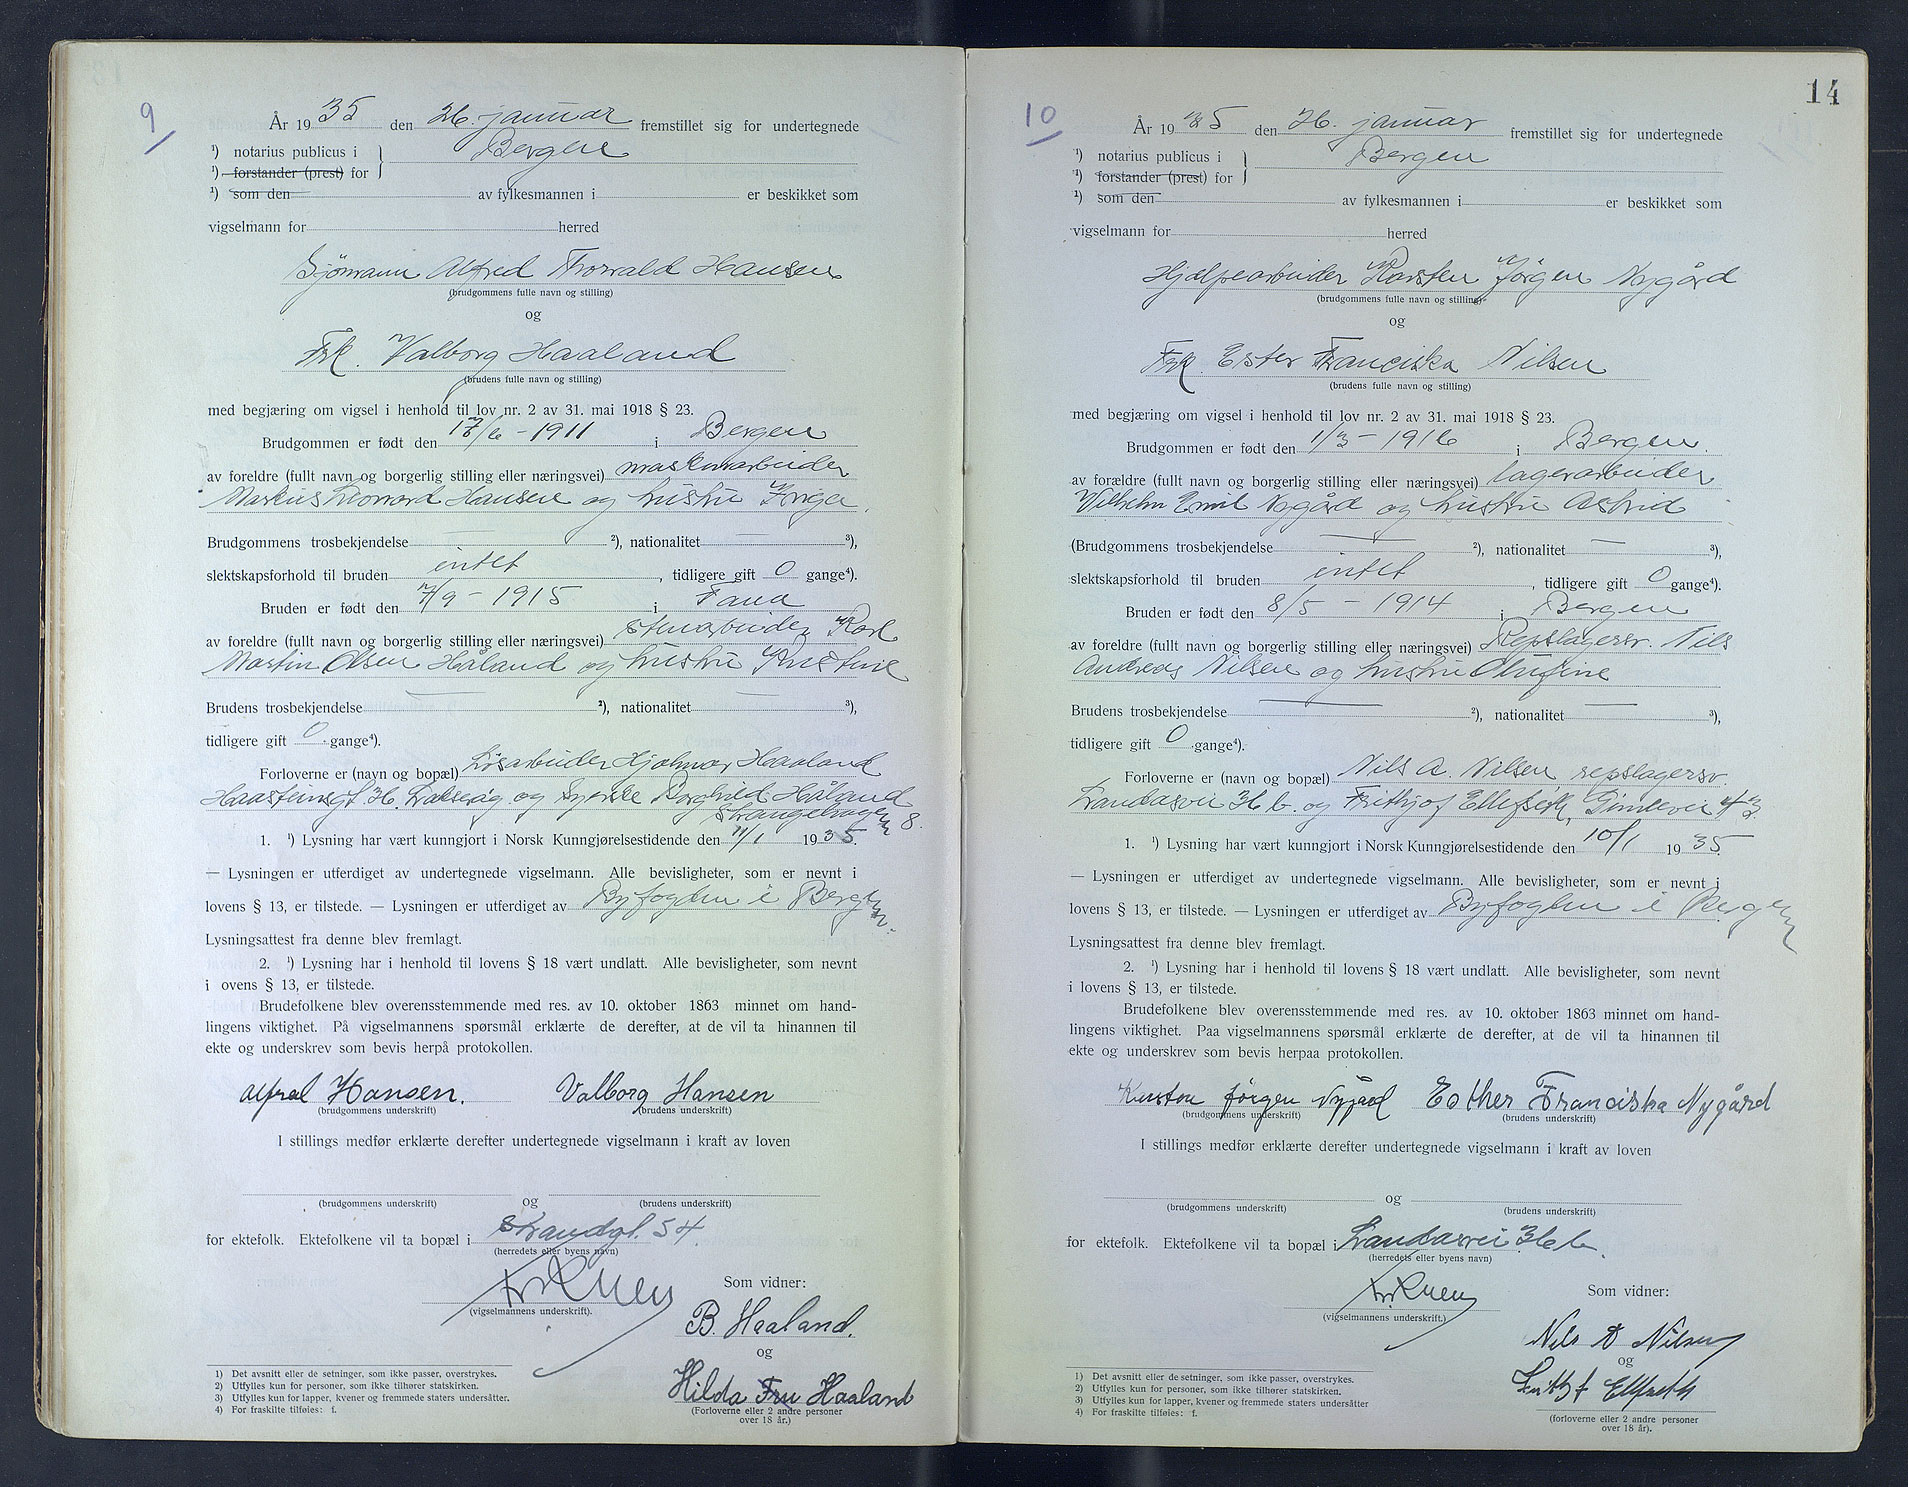 9
År 1935 den 26. januar fremstillet sig for undertegnede
¹) notarius publicus i } Bergen
¹) forstander (prest) for
¹) som den av fylkesmannen i er beskikket som
vigselmann for herred
Sjömann Alfred Thorvald Hansen
(brudgommens fulle navn og stilling)
og
Frk. Valborg Haaland
(brudens fulle navn og stilling)
med begjæring om vigsel i henhold til lov nr. 2 av 31. mai 1918 § 23.
Brudgommen er født den 17/6 - 1911 i Bergen
av foreldre (fullt navn og borgerlig stilling eller næringsvei) maskinarbeider
Markus Leonard Hansen og hustru Inga
Brudgommens trosbekjendelse — ²), nationalitet — ³),
slektskapsforhold til bruden intet, tidligere gift 0 gange⁴).
Bruden er født den 7/9 - 1915 i Fana
av foreldre (fullt navn og borgerlig stilling eller næringsvei) stenarbeider Karl
Martin Olsen Håland og hustru Kristine
Brudens trosbekjendelse — ²), nationalitet — ³),
tidligere gift 0 gange⁴).
Forloverne er (navn og bopæl) Løsarbeider Hjalmar Haaland
Haasteinsgt. Laksevåg og Syerske Borghild Håland
Strangehagen 8.
1. ¹) Lysning har vært kunngjort i Norsk Kunngjørelsestidende den 11/1 1935.
— Lysningen er utferdiget av undertegnede vigselmann. Alle bevisligheter, som er nevnt i
lovens § 13, er tilstede. — Lysningen er utferdiget av Byfogden i Bergen.
Lysningsattest fra denne blev fremlagt.
2. ¹) Lysning har i henhold til lovens § 18 vært undlatt. Alle bevisligheter, som nevnt
i ovens § 13, er tilstede.
Brudefolkene blev overensstemmende med res. av 10. oktober 1863 minnet om hand-
lingens viktighet. På vigselmannens spørsmål erklærte de derefter, at de vil ta hinannen til
ekte og underskrev som bevis herpå protokollen.
Alfred Hansen. Valborg Hansen
(brudgommens underskrift) (brudens underskrift)
I stillings medfør erklærte derefter undertegnede vigselmann i kraft av loven
og
(brudgommens underskrift) (brudens underskrift)
for ektefolk. Ektefolkene vil ta bopæl i Strandgt. 54.
(herredets eller byens navn)
Som vidner:
(vigselmannens underskrift).
B. Haaland.
og
Hilda Fru Haaland
(Forloverne eller 2 andre personer
over 18 år.)
1) Det avsnitt eller de setninger, som ikke passer, overstrykes.
2) Utfylles kun for personer, som ikke tilhører statskirken.
3) Utfylles kun for lapper, kvener og fremmede staters undersåtter.
4) For fraskilte tilføies: f.
14
10
År 1935 den 26. januar fremstillet sig for undertegnede
¹) notarius publicus i } Bergen
¹) forstander (prest) for
¹) som den av fylkesmannen i er beskikket som
vigselmann for herred
Hjælpearbeider Karsten Jörgen Nygård
(brudgommens fulle navn og stilling)
og
Frk. Ester Franciska Nilsen
(brudens fulle navn og stilling)
med begjæring om vigsel i henhold til lov nr. 2 av 31. mai 1918 § 23.
Brudgommen er født den 1/3 - 1916 i Bergen.
av forældre (fullt navn og borgerlig stilling eller næringsvei) lagerarbeider
Vilhelm Emil Nygård og hustru Astrid
(Brudgommens trosbekjendelse — ²), nationalitet — ³),
slektskapsforhold til bruden intet, tidligere gift 0 gange⁴).
Bruden er født den 8/5 - 1914 i Bergen
av foreldre (fullt navn og borgerlig stilling eller næringsvei) Repslagersv. Nils
Andreas Nilsen og hustru Olufine
Brudens trosbekjendelse — ²), nationalitet — ³),
tidligere gift 0 gange⁴).
Forloverne er (navn og bopæl) Nils A. Nilsen repslagersv.
Landåsvei 36 b. og Frithjof Ellefseth, Gimlevei 43
1. ¹) Lysning har vært kunngjort i Norsk Kunngjørelsestidende den 10/1 1935.
— Lysningen er utferdiget av undertegnede vigselmann. Alle bevisligheter, som er nevnt i
lovens § 13, er tilstede. — Lysningen er utferdiget av Byfogden i Bergen
Lysningsattest fra denne blev fremlagt.
2. ¹) Lysning har i henhold til lovens § 18 vært undlatt. Alle bevisligheter, som nevnt
i lovens § 13, er tilstede.
Brudefolkene blev overensstemmende med res. av 10. oktober 1863 minnet om hand-
lingens viktighet. Paa vigselmannens spørsmål erklærte de derefter, at de vil ta hinannen til
ekte og underskrev som bevis herpaa protokollen.
Karsten Jörgen Nygård Esther Franciska Nygård
(brudgommens underskrift) (brudens underskrift)
I stillings medfør erklærte derefter undertegnede vigselmann i kraft av loven
og
(brudgommens underskrift) (brudens underskrift)
for ektefolk. Ektefolkene vil ta bopæl i Landåsvei 36 b.
(herredets eller byens navn)
Som vidner:
(vigselmannens underskrift.)
Nils A Nilsen
og
Frithjof Ellefseth
(forloverne eller 2 andre personer
over 18 år).
1) Det avsnitt eller de setninger, som ikke passer, overstrykes.
2) Utfylles kun for personer, som ikke tilhører statskirken.
3) Utfylles kun for lapper, kvener og fremmede staters undersåtter
4) For fraskilte tilføies: f.